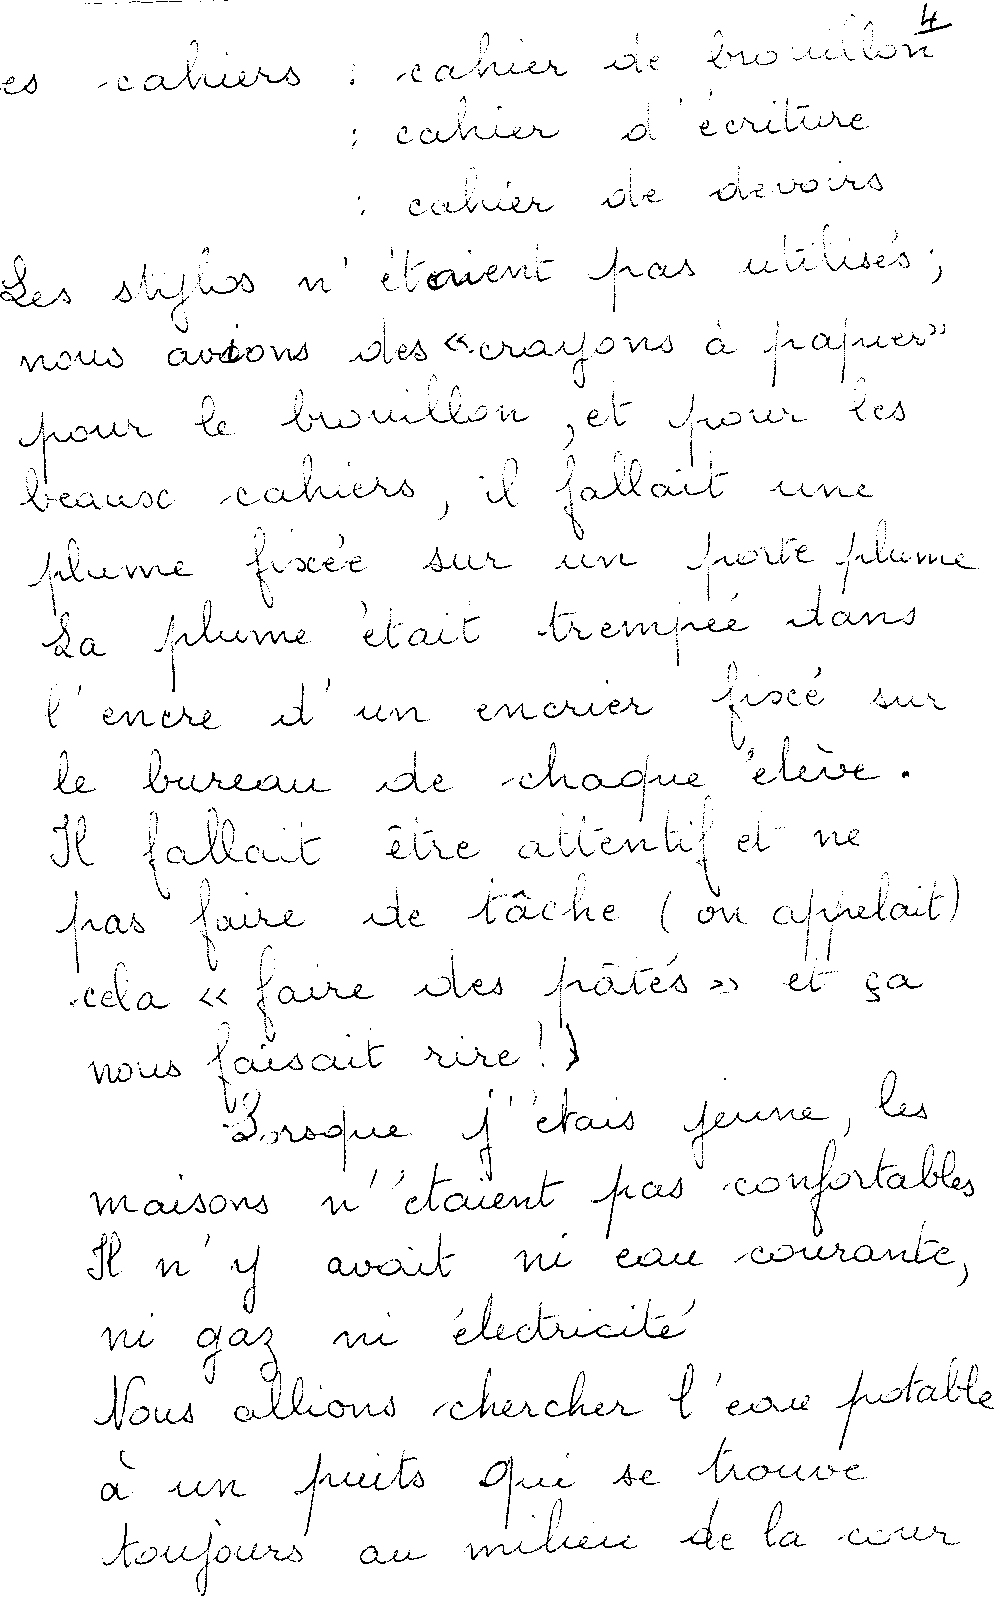 4
es cahiers : cahier de brouillon
: cahier d'écriture
: cahier de devoirs
Les stylos n'étaient pas utilisés ;
nous avions des «crayons à papier"
pour le brouillon, et pour les
beaux cahiers, il fallait une
plume fixée sur un porte plume
La plume était trempée dans
l'encre d'un encrier fixé sur
le bureau de chaque élève.
Il fallait être attentif et ne
pas faire de tâche (on appelait)
cela « faire des pâtés » et ça
nous faisait rire !)
Lorsque j'étais jeune, les
maisons n'étaient pas confortables
Il n'y avait ni eau courante,
ni gaz ni électricité
Nous allions chercher l'eau potable
à un puits qui se trouve
toujours au milieu de la cour